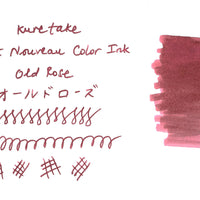 Kuretake
Nouveau Color Ink
Old Rose
オールドローズ